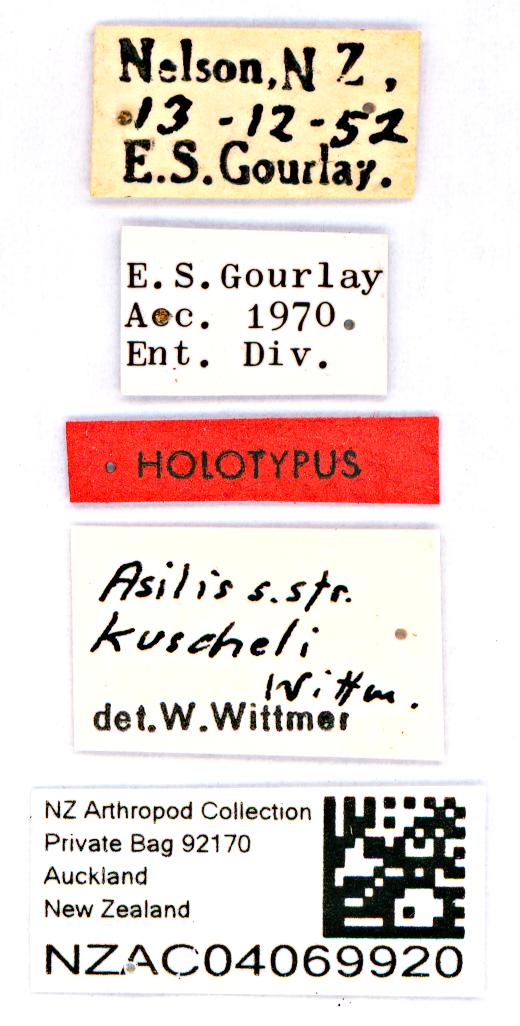 Nelson, N Z,
13-12-52
E.S.Gourlay.
E.S.Gourlay
Acc. 1970.
Ent. Div.
HOLOTYPUS
Asilis s.str.
kuscheli
Wittm.
det.W.Wittmer
NZ Arthropod Collection
Private Bag 92170
Auckland
New Zealand
NZAC04069920